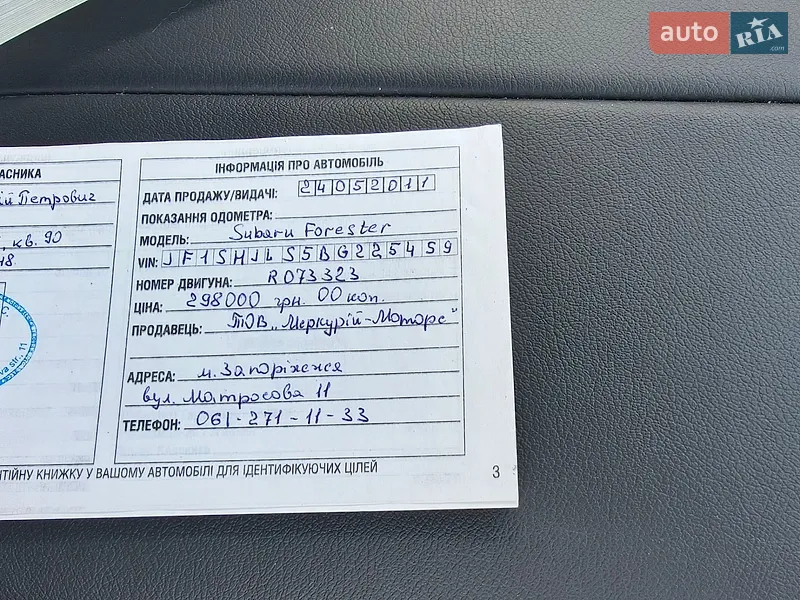 auto RIA.com
АСНИКА
ій Петрович
, кв. 90
48
va str., 11
ІНФОРМАЦІЯ ПРО АВТОМОБІЛЬ
ДАТА ПРОДАЖУ/ВИДАЧІ: 24052011
ПОКАЗАННЯ ОДОМЕТРА:
МОДЕЛЬ: Subaru Forester
VIN: JF1SHJLS5BG225459
НОМЕР ДВИГУНА: R073323
ЦІНА: 298000 грн. 00 коп.
ПРОДАВЕЦЬ: ТОВ „Меркурій-Моторс"
АДРЕСА: м. Запоріжжя
вул. Матросова 11
ТЕЛЕФОН: 061-271-11-33
НТІЙНУ КНИЖКУ У ВАШОМУ АВТОМОБІЛІ ДЛЯ ІДЕНТИФІКУЮЧИХ ЦІЛЕЙ
3